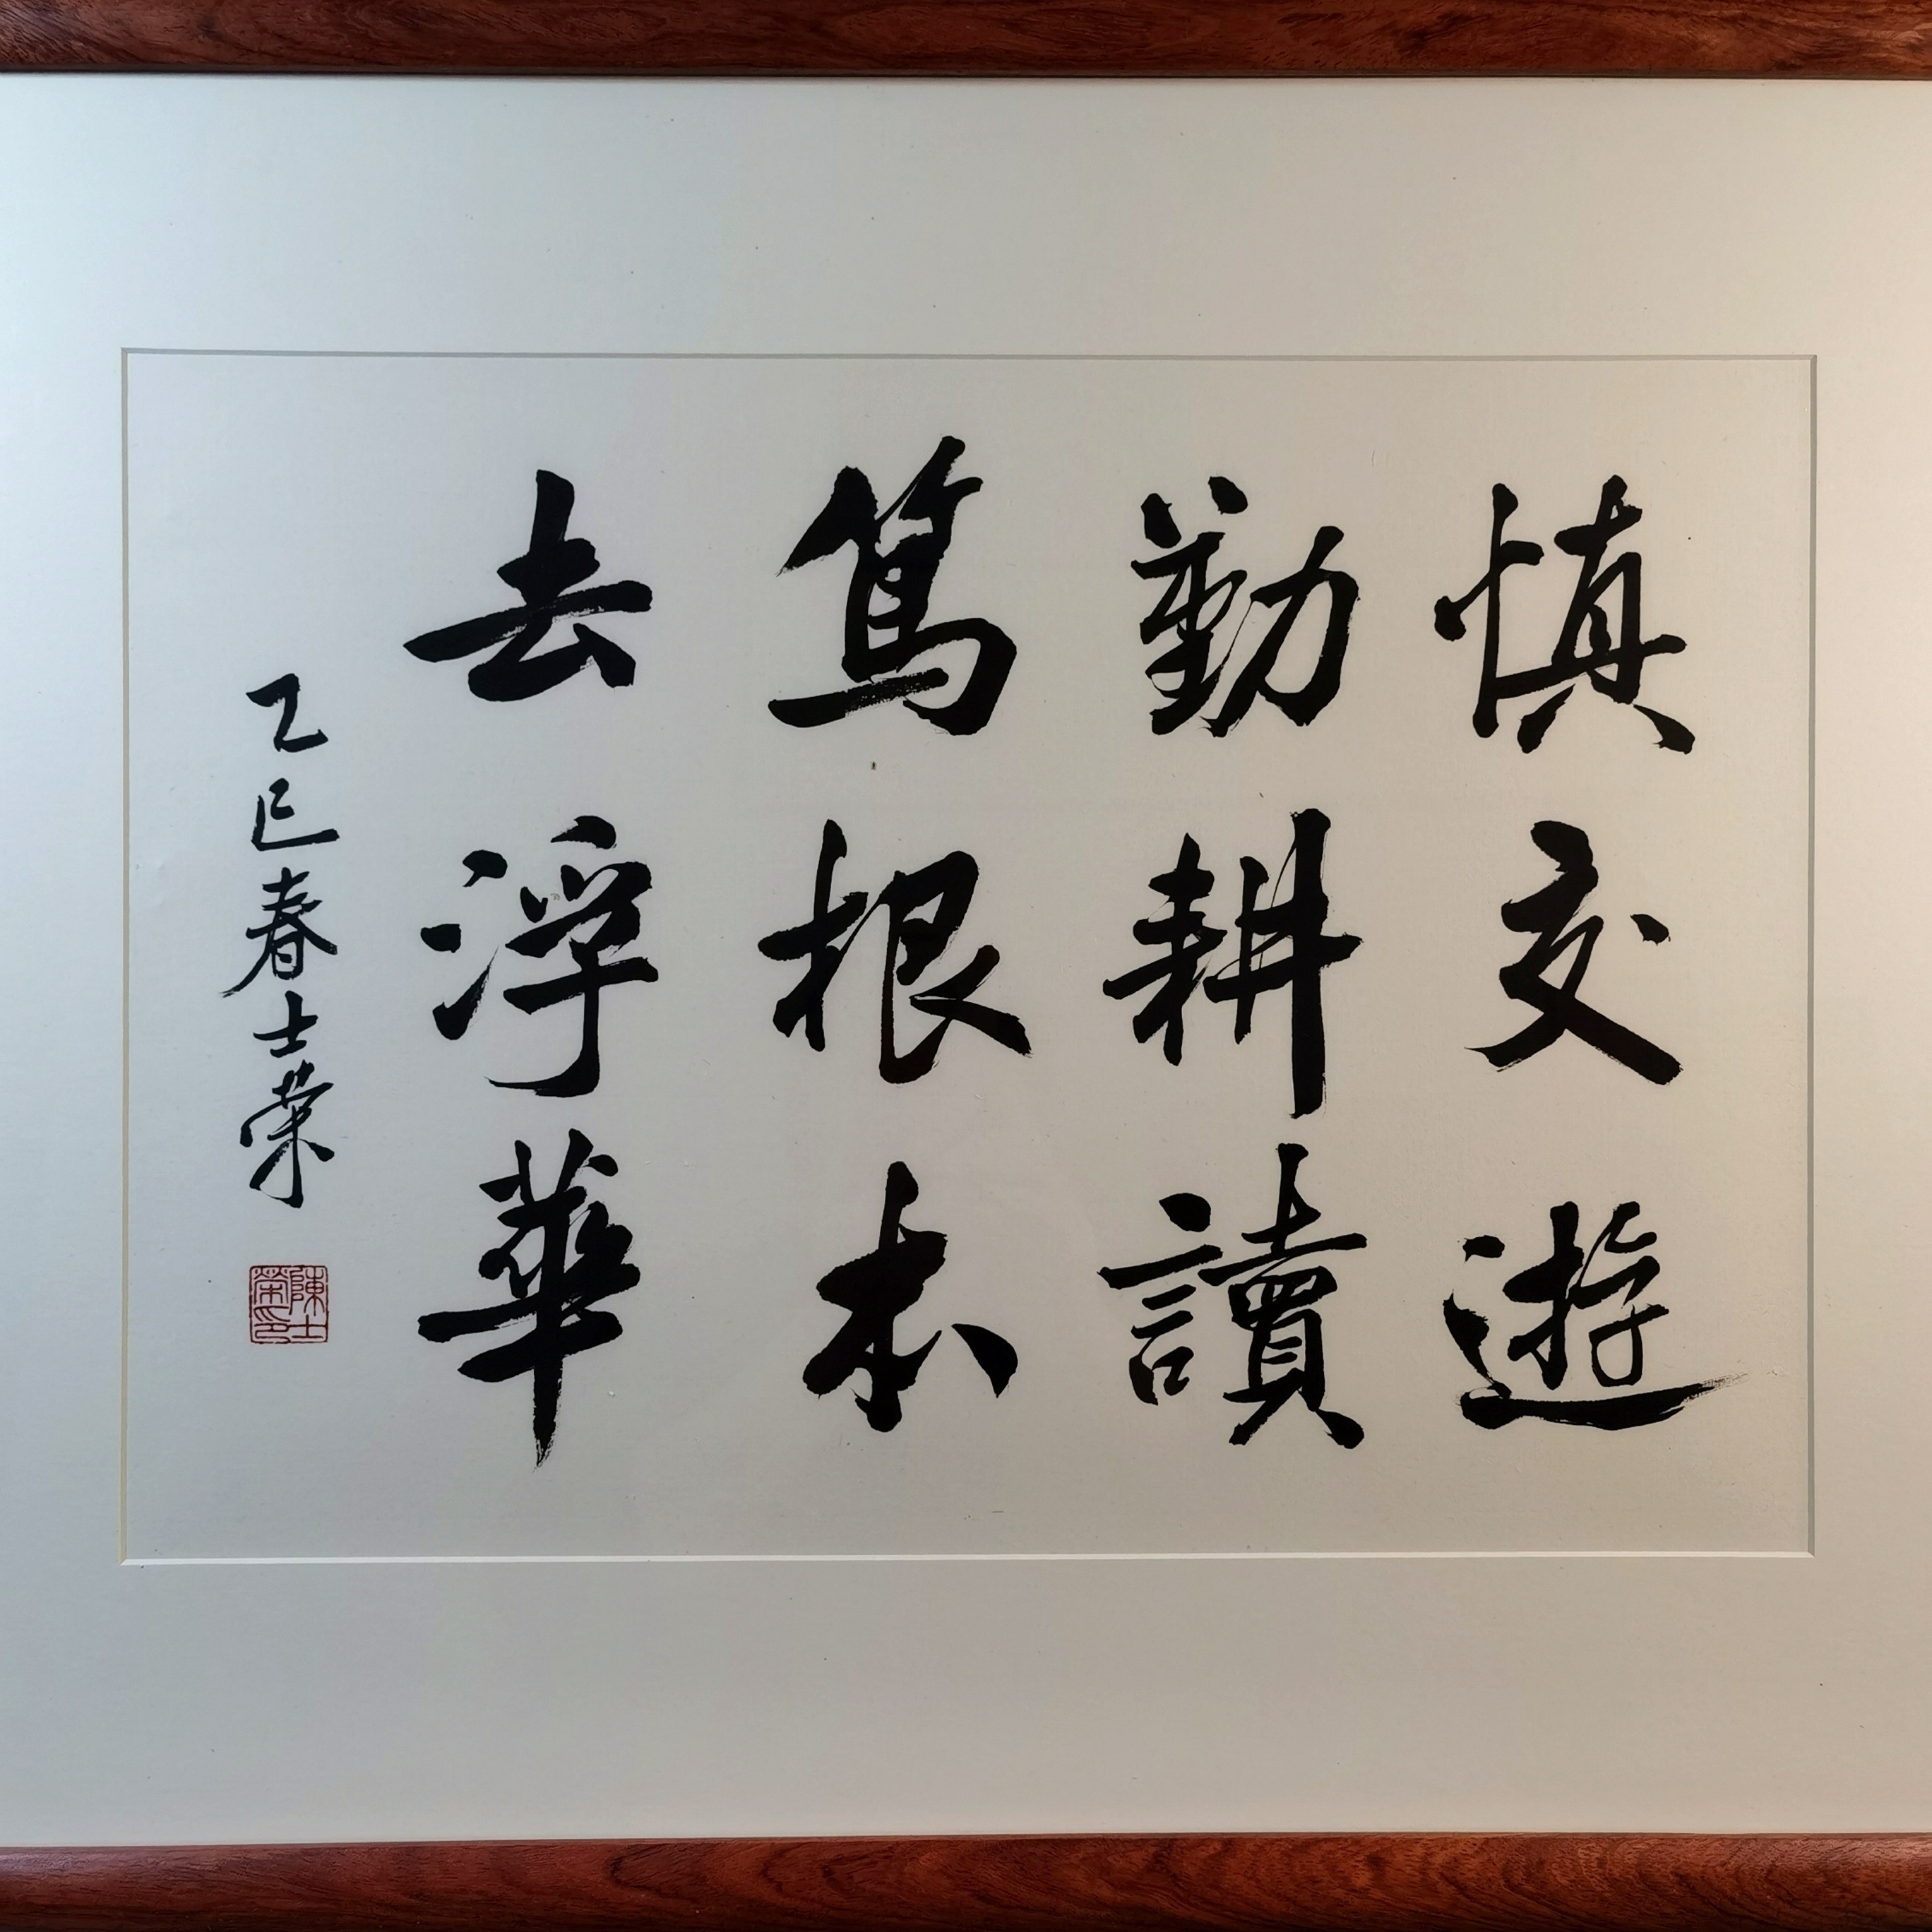 慎交遊
勤耕讀
篤根本
去浮華
乙巳春士荣
陳士
榮印